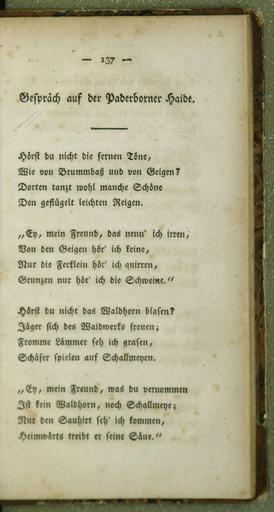 — 137 —
Gespräch auf der Paderborner Haide.
Hörst du nicht die fernen Töne,
Wie von Brummbaß und von Geigen?
Dorten tanzt wohl manche Schöne
Den geflügelt leichten Reigen.
„Ey, mein Freund, das nenn' ich irren,
Von den Geigen hör' ich keine,
Nur die Ferklein hör' ich quirren,
Grunzen nur hör' ich die Schweine."
Hörst du nicht das Waldhorn blasen?
Jäger sich des Waidwerks freuen;
Fromme Lämmer seh ich grasen,
Schäfer spielen auf Schallmeyen.
„Ey, mein Freund, was du vernommen
Ist kein Waldhorn, noch Schallmeye;
Nur den Sauhirt seh' ich kommen,
Heimwärts treibt er seine Säue."